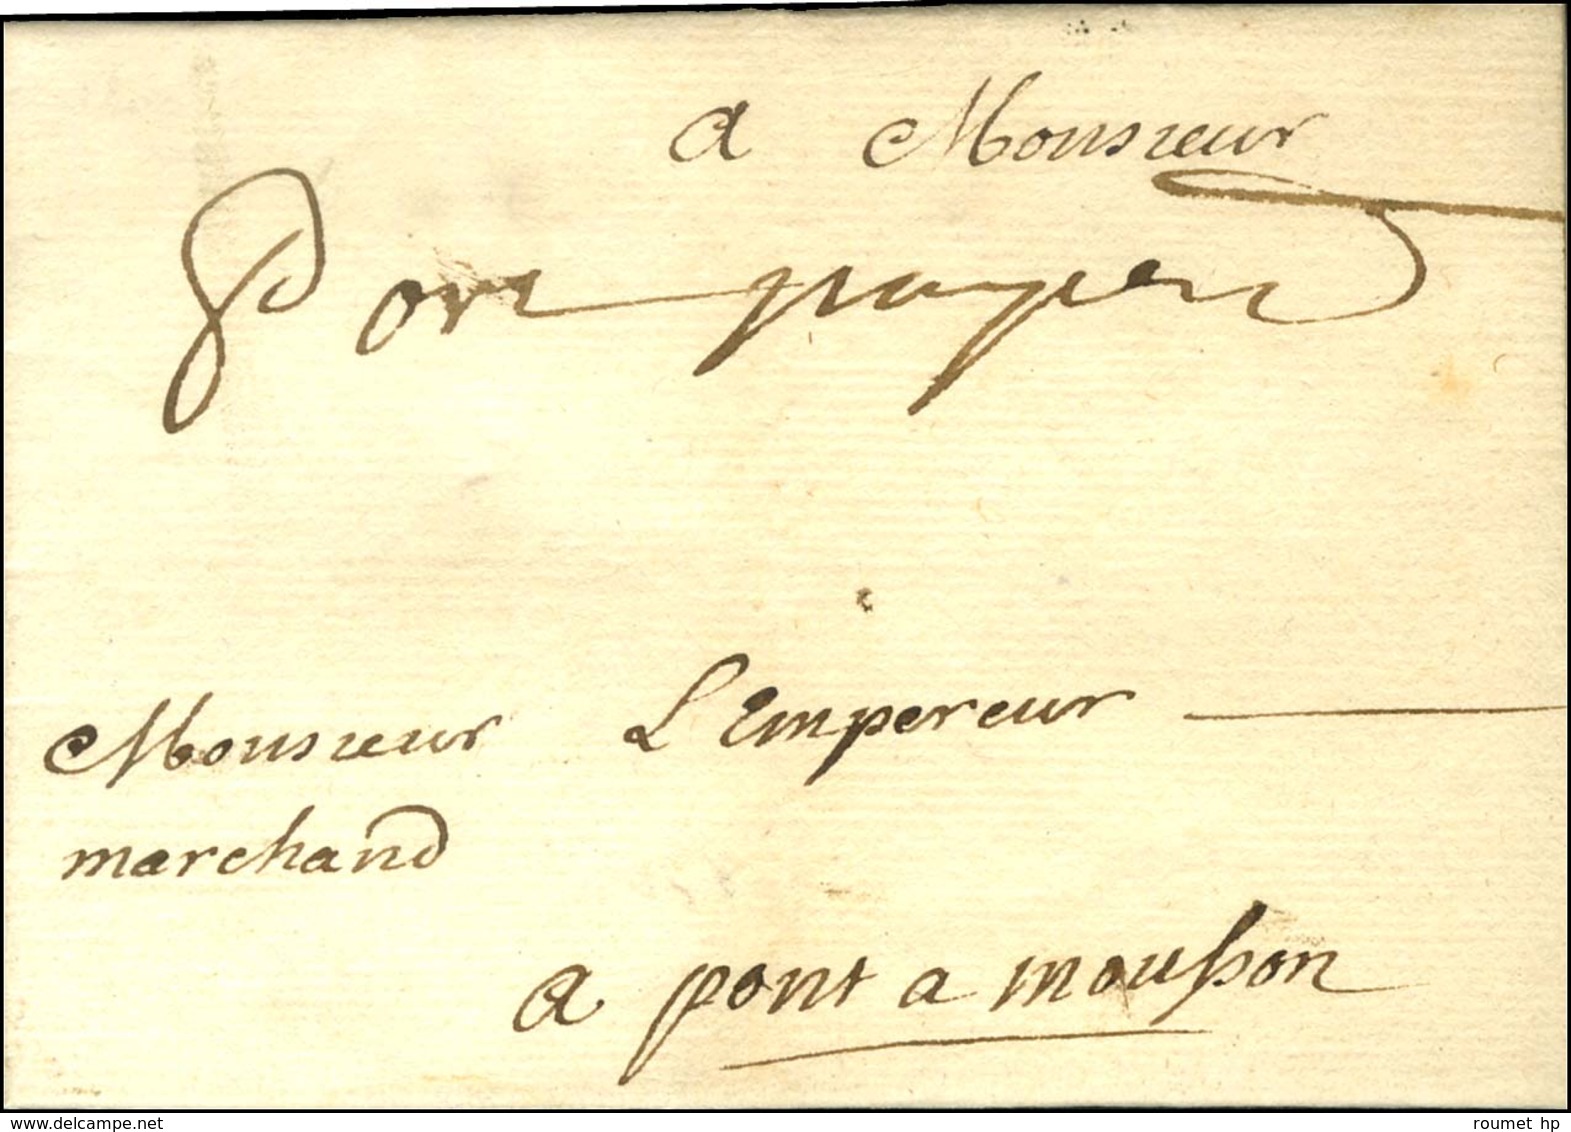 a Monsieur
Port payé
Monsieur L'Empereur
marchand
a pont a mousson
delcampe.net
roumet hp